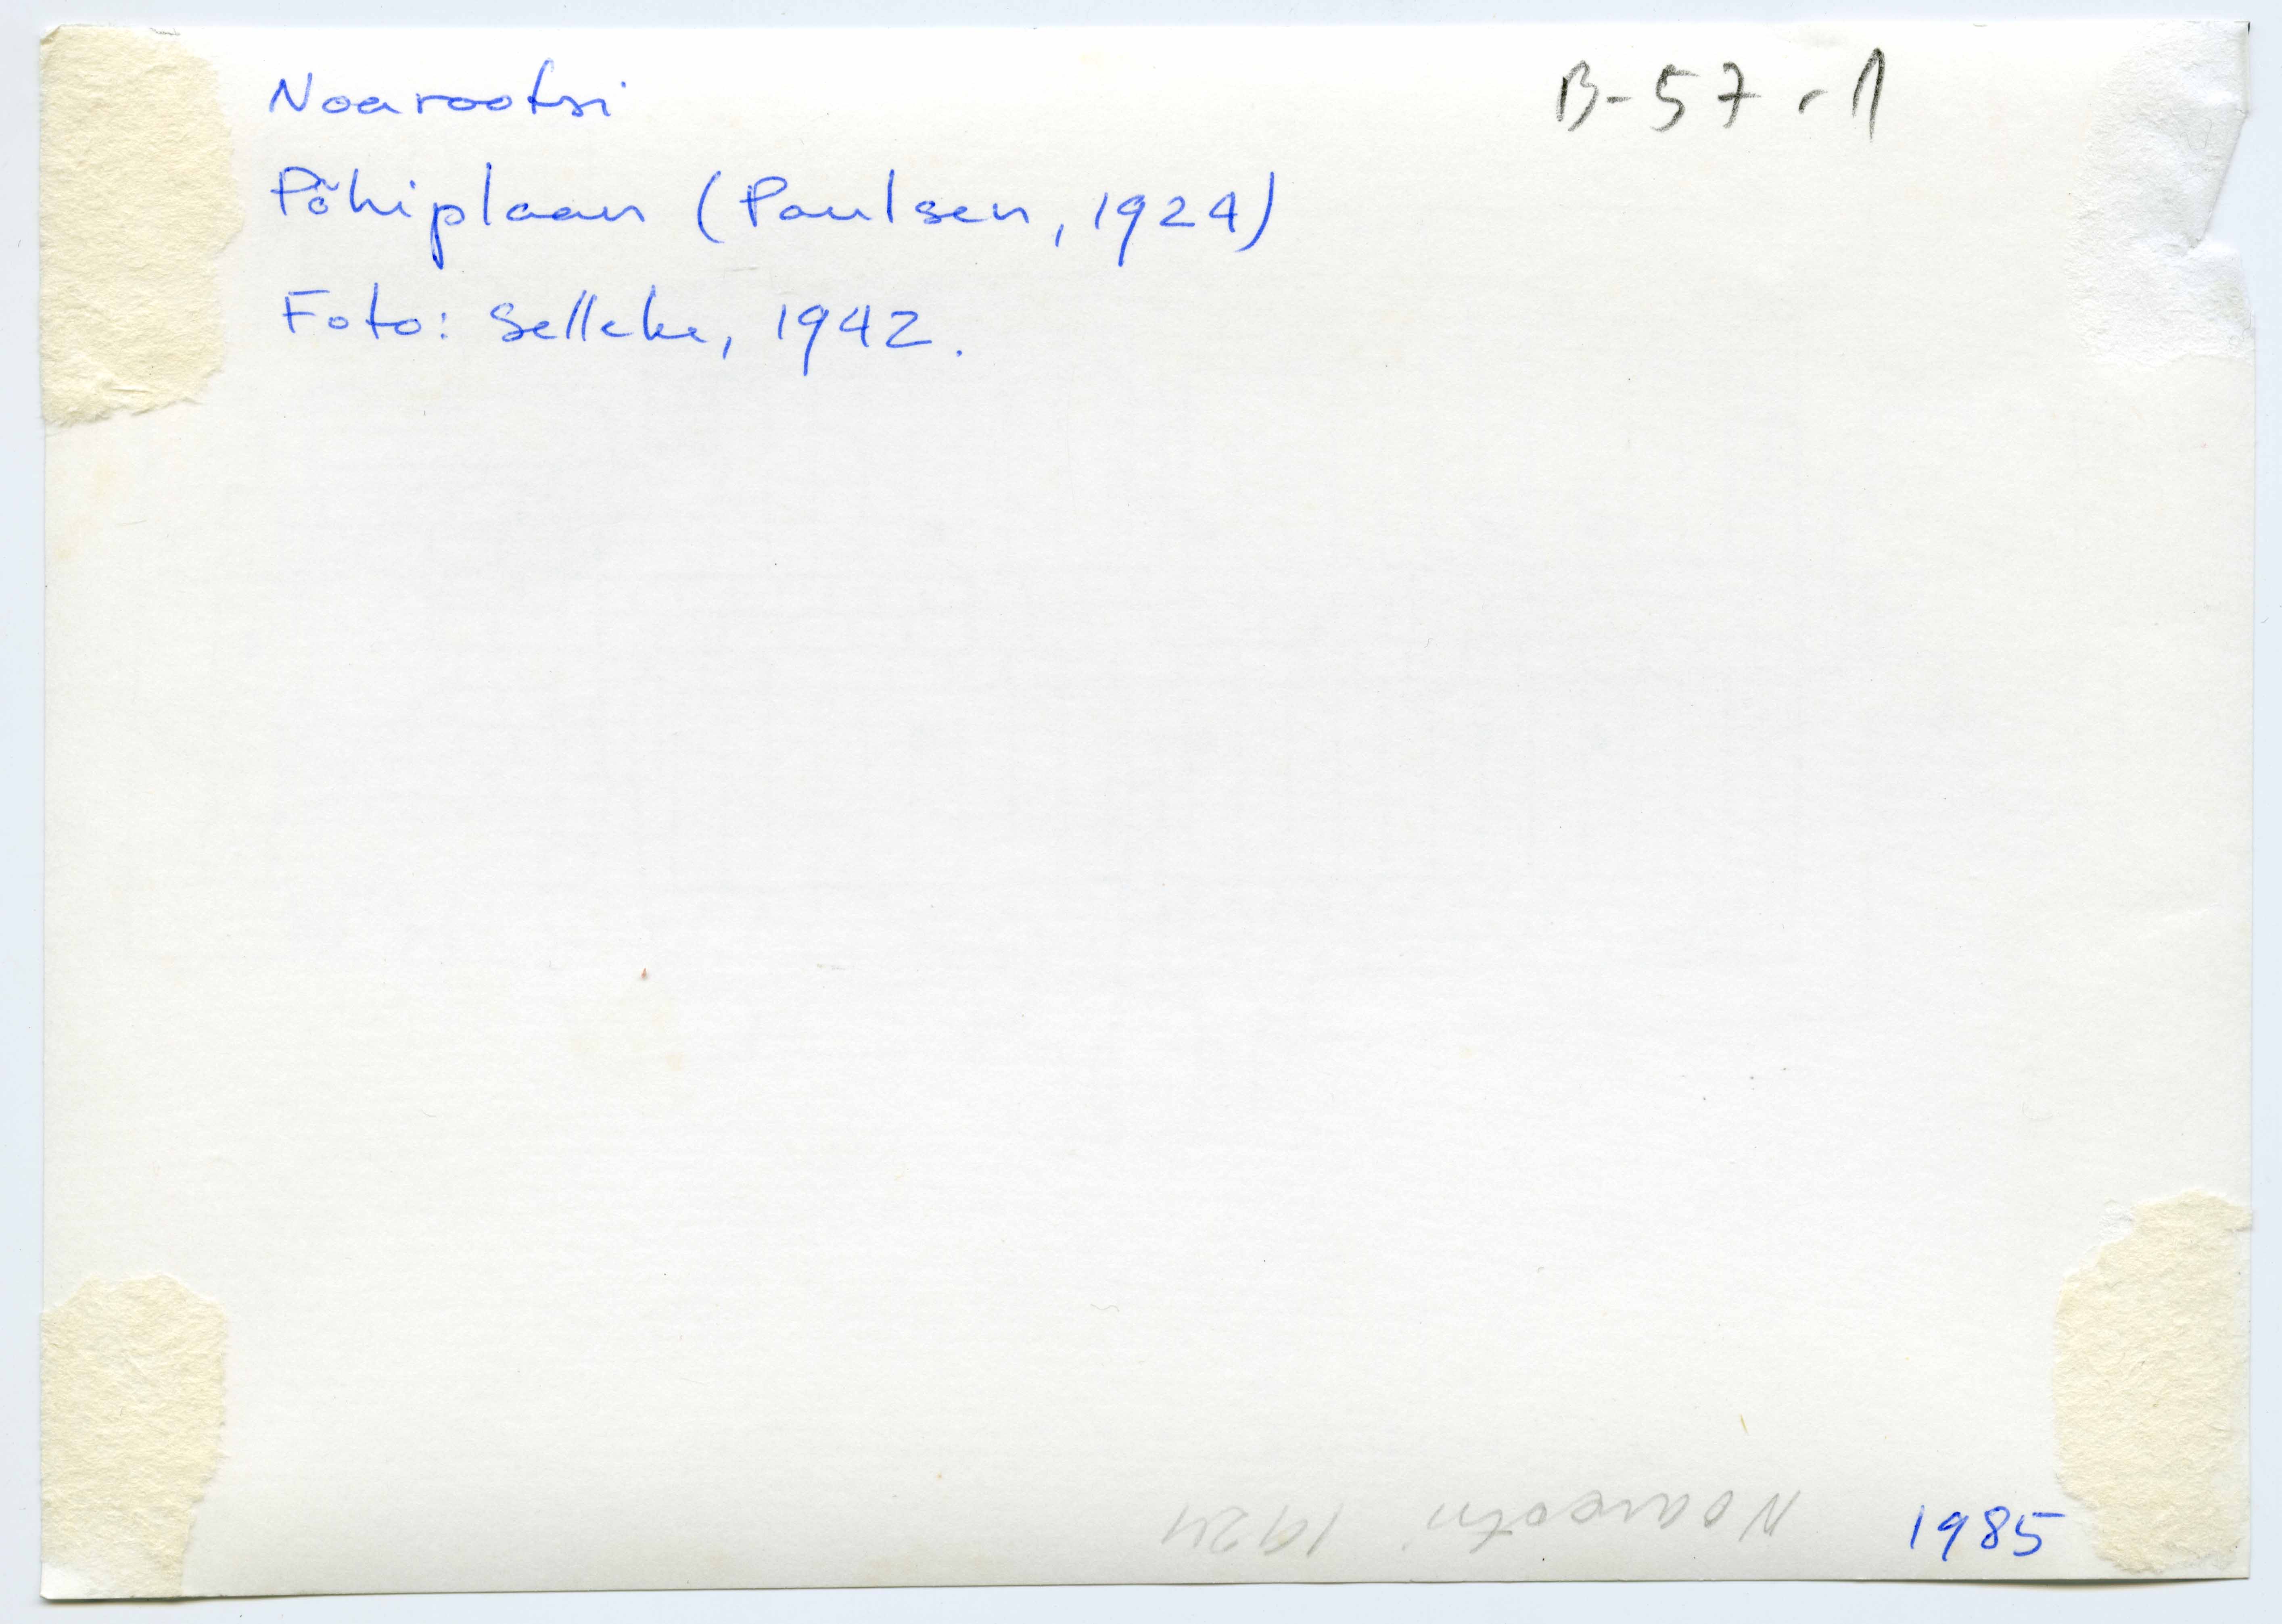 Noarootsi
B-57-1
Põhiplaan (Paulsen, 1924)
Foto: Selleke, 1942.
Noarootsi 1924
1985